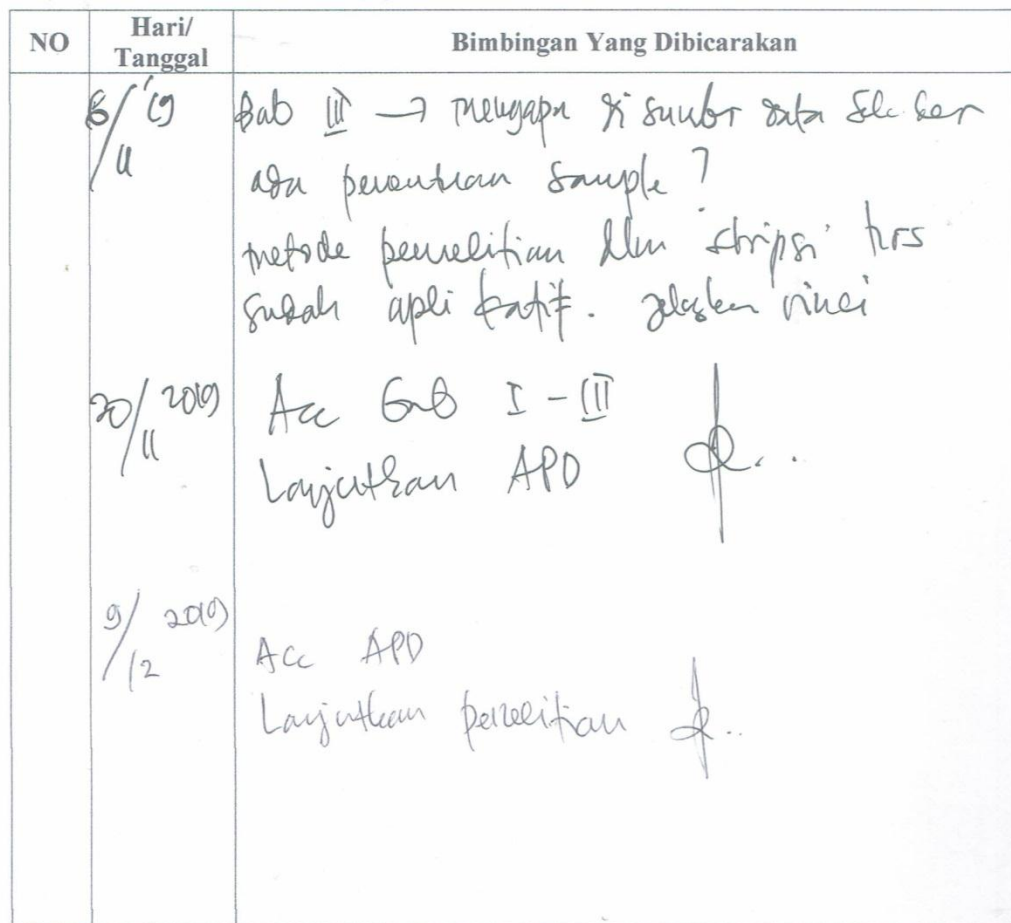 NO Hari/ Tanggal Bimbingan Yang Dibicarakan
6/11 '19 Bab III → mengapa di sumber data
ada penentuan sample?
metode penelitian dlm skripsi hrs
sudah aplikatif. jelaskan rinci
20/11 2019 Acc Bab I - III
Lanjutkan APD
9/12 2019 Acc APD
Lanjutkan penelitian